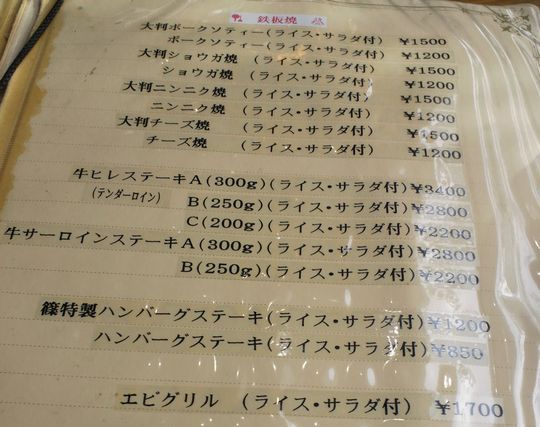 鉄板焼
大判ポークソティー(ライス・サラダ付) ¥1500
ポークソティー(ライス・サラダ付) ¥1200
大判ショウガ焼 (ライス・サラダ付) ¥1500
ショウガ焼 (ライス・サラダ付) ¥1200
大判ニンニク焼 (ライス・サラダ付) ¥1500
ニンニク焼 (ライス・サラダ付) ¥1200
大判チーズ焼 (ライス・サラダ付) ¥1500
チーズ焼 (ライス・サラダ付) ¥1200
牛ヒレステーキA(300g)(ライス・サラダ付)¥3400
(テンダーロイン) B(250g)(ライス・サラダ付)¥2800
C(200g)(ライス・サラダ付)¥2200
牛サーロインステーキA(300g)(ライス・サラダ付)¥2800
B(250g)(ライス・サラダ付)¥2200
篠特製ハンバーグステーキ(ライス・サラダ付)¥1200
ハンバーグステーキ(ライス・サラダ付)¥850
エビグリル (ライス・サラダ付) ¥1700